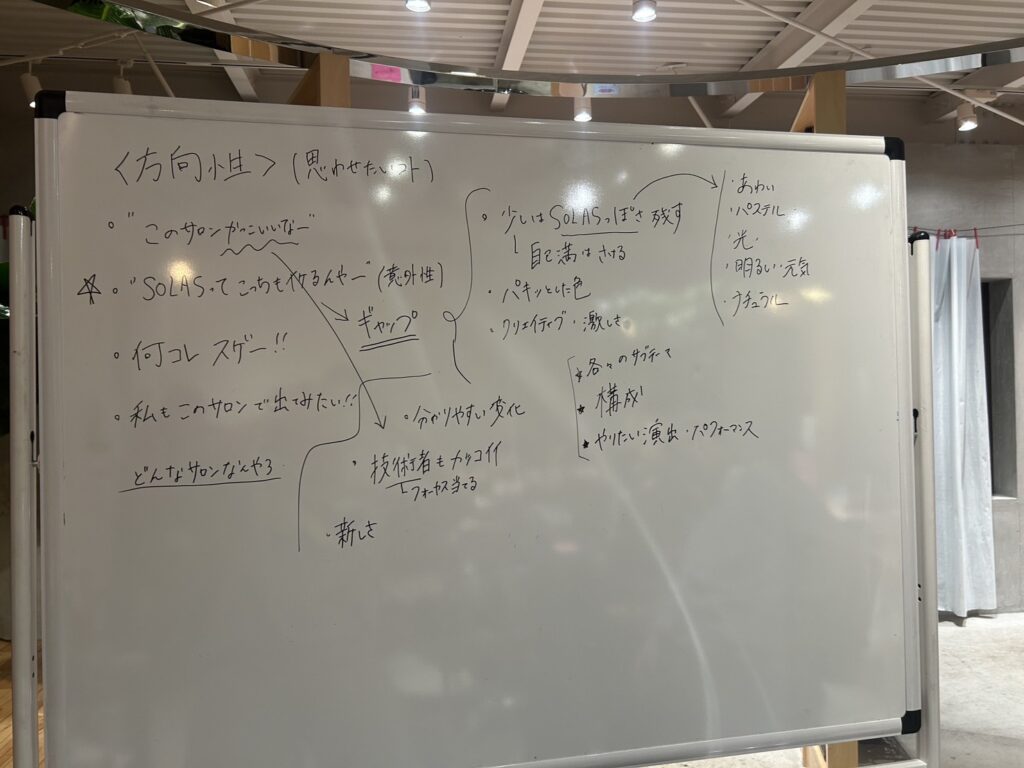 〈方向性〉(思わせたいコト)
。"このサロンかっこいいなー"
☆。"SOLASって こっちもイケるんやー"(意外性)
・何コレ スゲー!!
・私もこのサロンで出てみたい!!
どんなサロンなんやろ
ギャップ
・分かりやすい変化
・技術者もカッコイイ
└フォーカス当てる
・新しさ
・少しはSOLASっぽさ残す
└自己満はさける
・パキッとした色
・クリエイティブ・激しさ
★各々のサブテーマ
★構成
★やりたい演出・パフォーマンス
・あわい
・パステル
・光
・明るい・元気
・ナチュラル